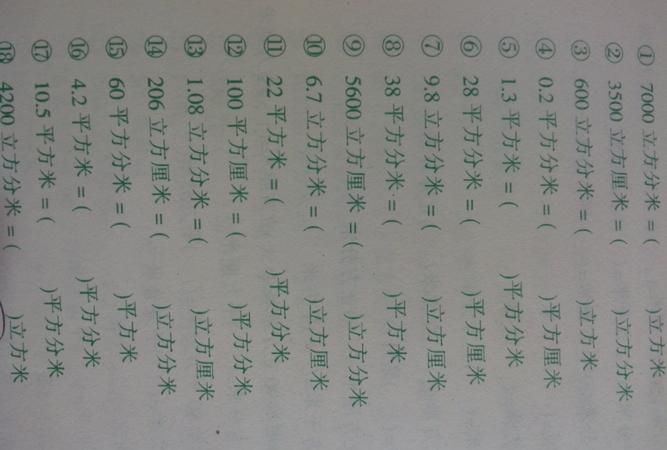 ① 7000 立方分米 = (  )立方米
② 3500 立方厘米 = (  )立方分米
③ 600 立方分米 = (  )立方米
④ 0.2 平方分米 = (  )平方厘米
⑤ 1.3 平方米 = (  )平方分米
⑥ 28 平方分米 = (  )平方厘米
⑦ 9.8 立方分米 = (  )立方厘米
⑧ 38 平方分米 = (  )平方米
⑨ 5600 立方厘米 = (  )立方分米
⑩ 6.7 立方分米 = (  )立方厘米
⑪ 22 平方米 = (  )平方分米
⑫ 100 平方厘米 = (  )平方分米
⑬ 1.08 立方分米 = (  )立方厘米
⑭ 206 立方厘米 = (  )立方分米
⑮ 60 平方分米 = (  )平方米
⑯ 4.2 平方米 = (  )平方分米
⑰ 10.5 平方米 = (  )平方分米
⑱ 4200 立方分米 = (  )立方米